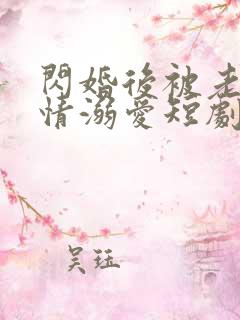 閃婚後被走
情溺愛短劇
吴珏